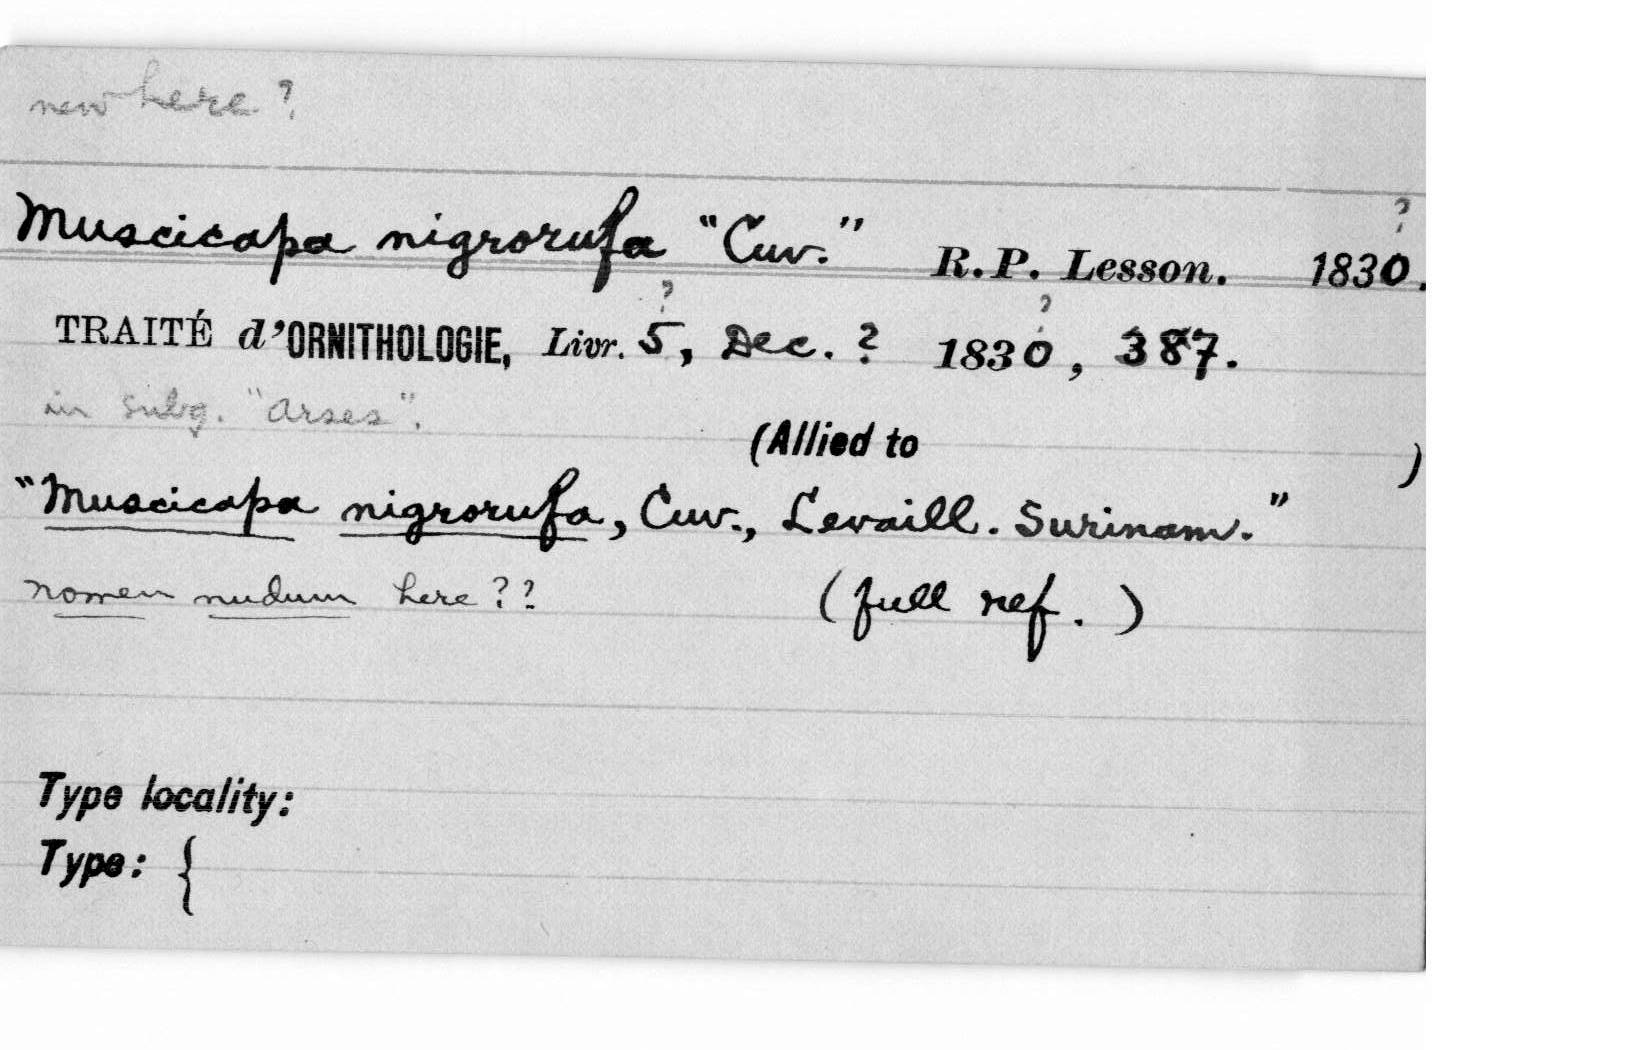 new here?
Muscicapa nigrorufa "Cuv." R. P. Lesson. 1830?.
TRAITÉ d'ORNITHOLOGIE, Livr. 5?, Dec. ? 1830?, 387.
in subg. "Arses".
(Allied to )
"Muscicapa nigrorufa, Cuv., Levaill. Surinam."
nomen nudum here??
(full ref.)
Type locality:
Type: {